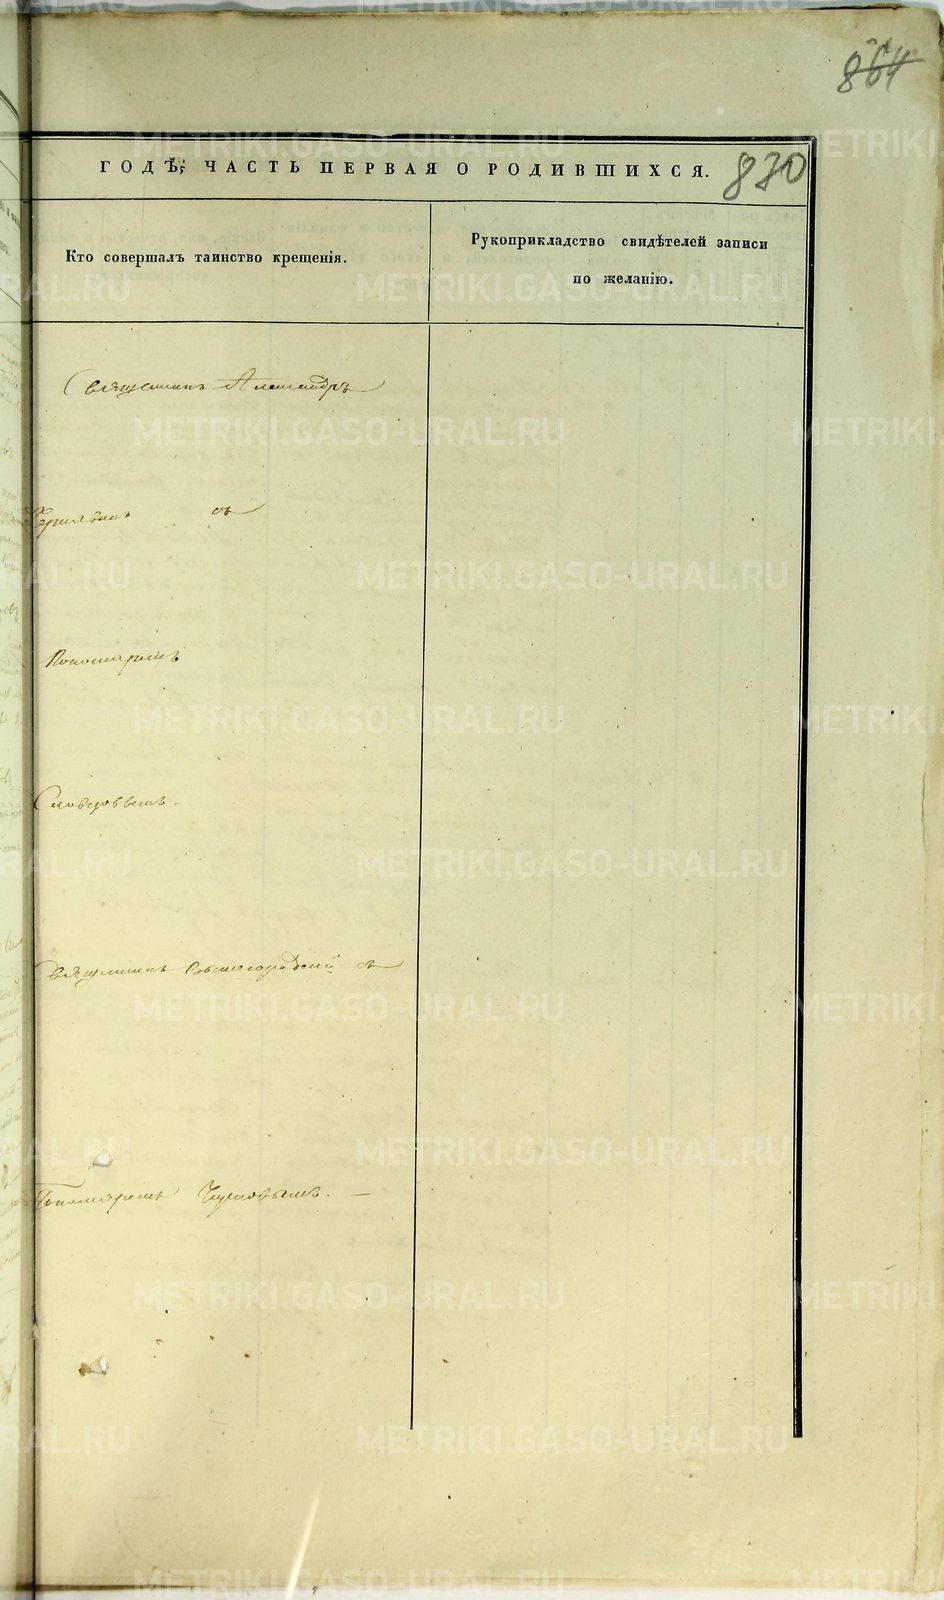 864
ГОДѢ; ЧАСТЬ ПЕРВАЯ О РОДИВШИХСЯ.
830
Кто совершалъ таинство крещенія.
Рукоприкладство свидѣтелей записи
по желанію.
Священникъ Александръ
съ
Пономаремъ
Словцовымъ.
Священникъ съ
Пономаремъ
METRIKI.GASO-URAL.RU